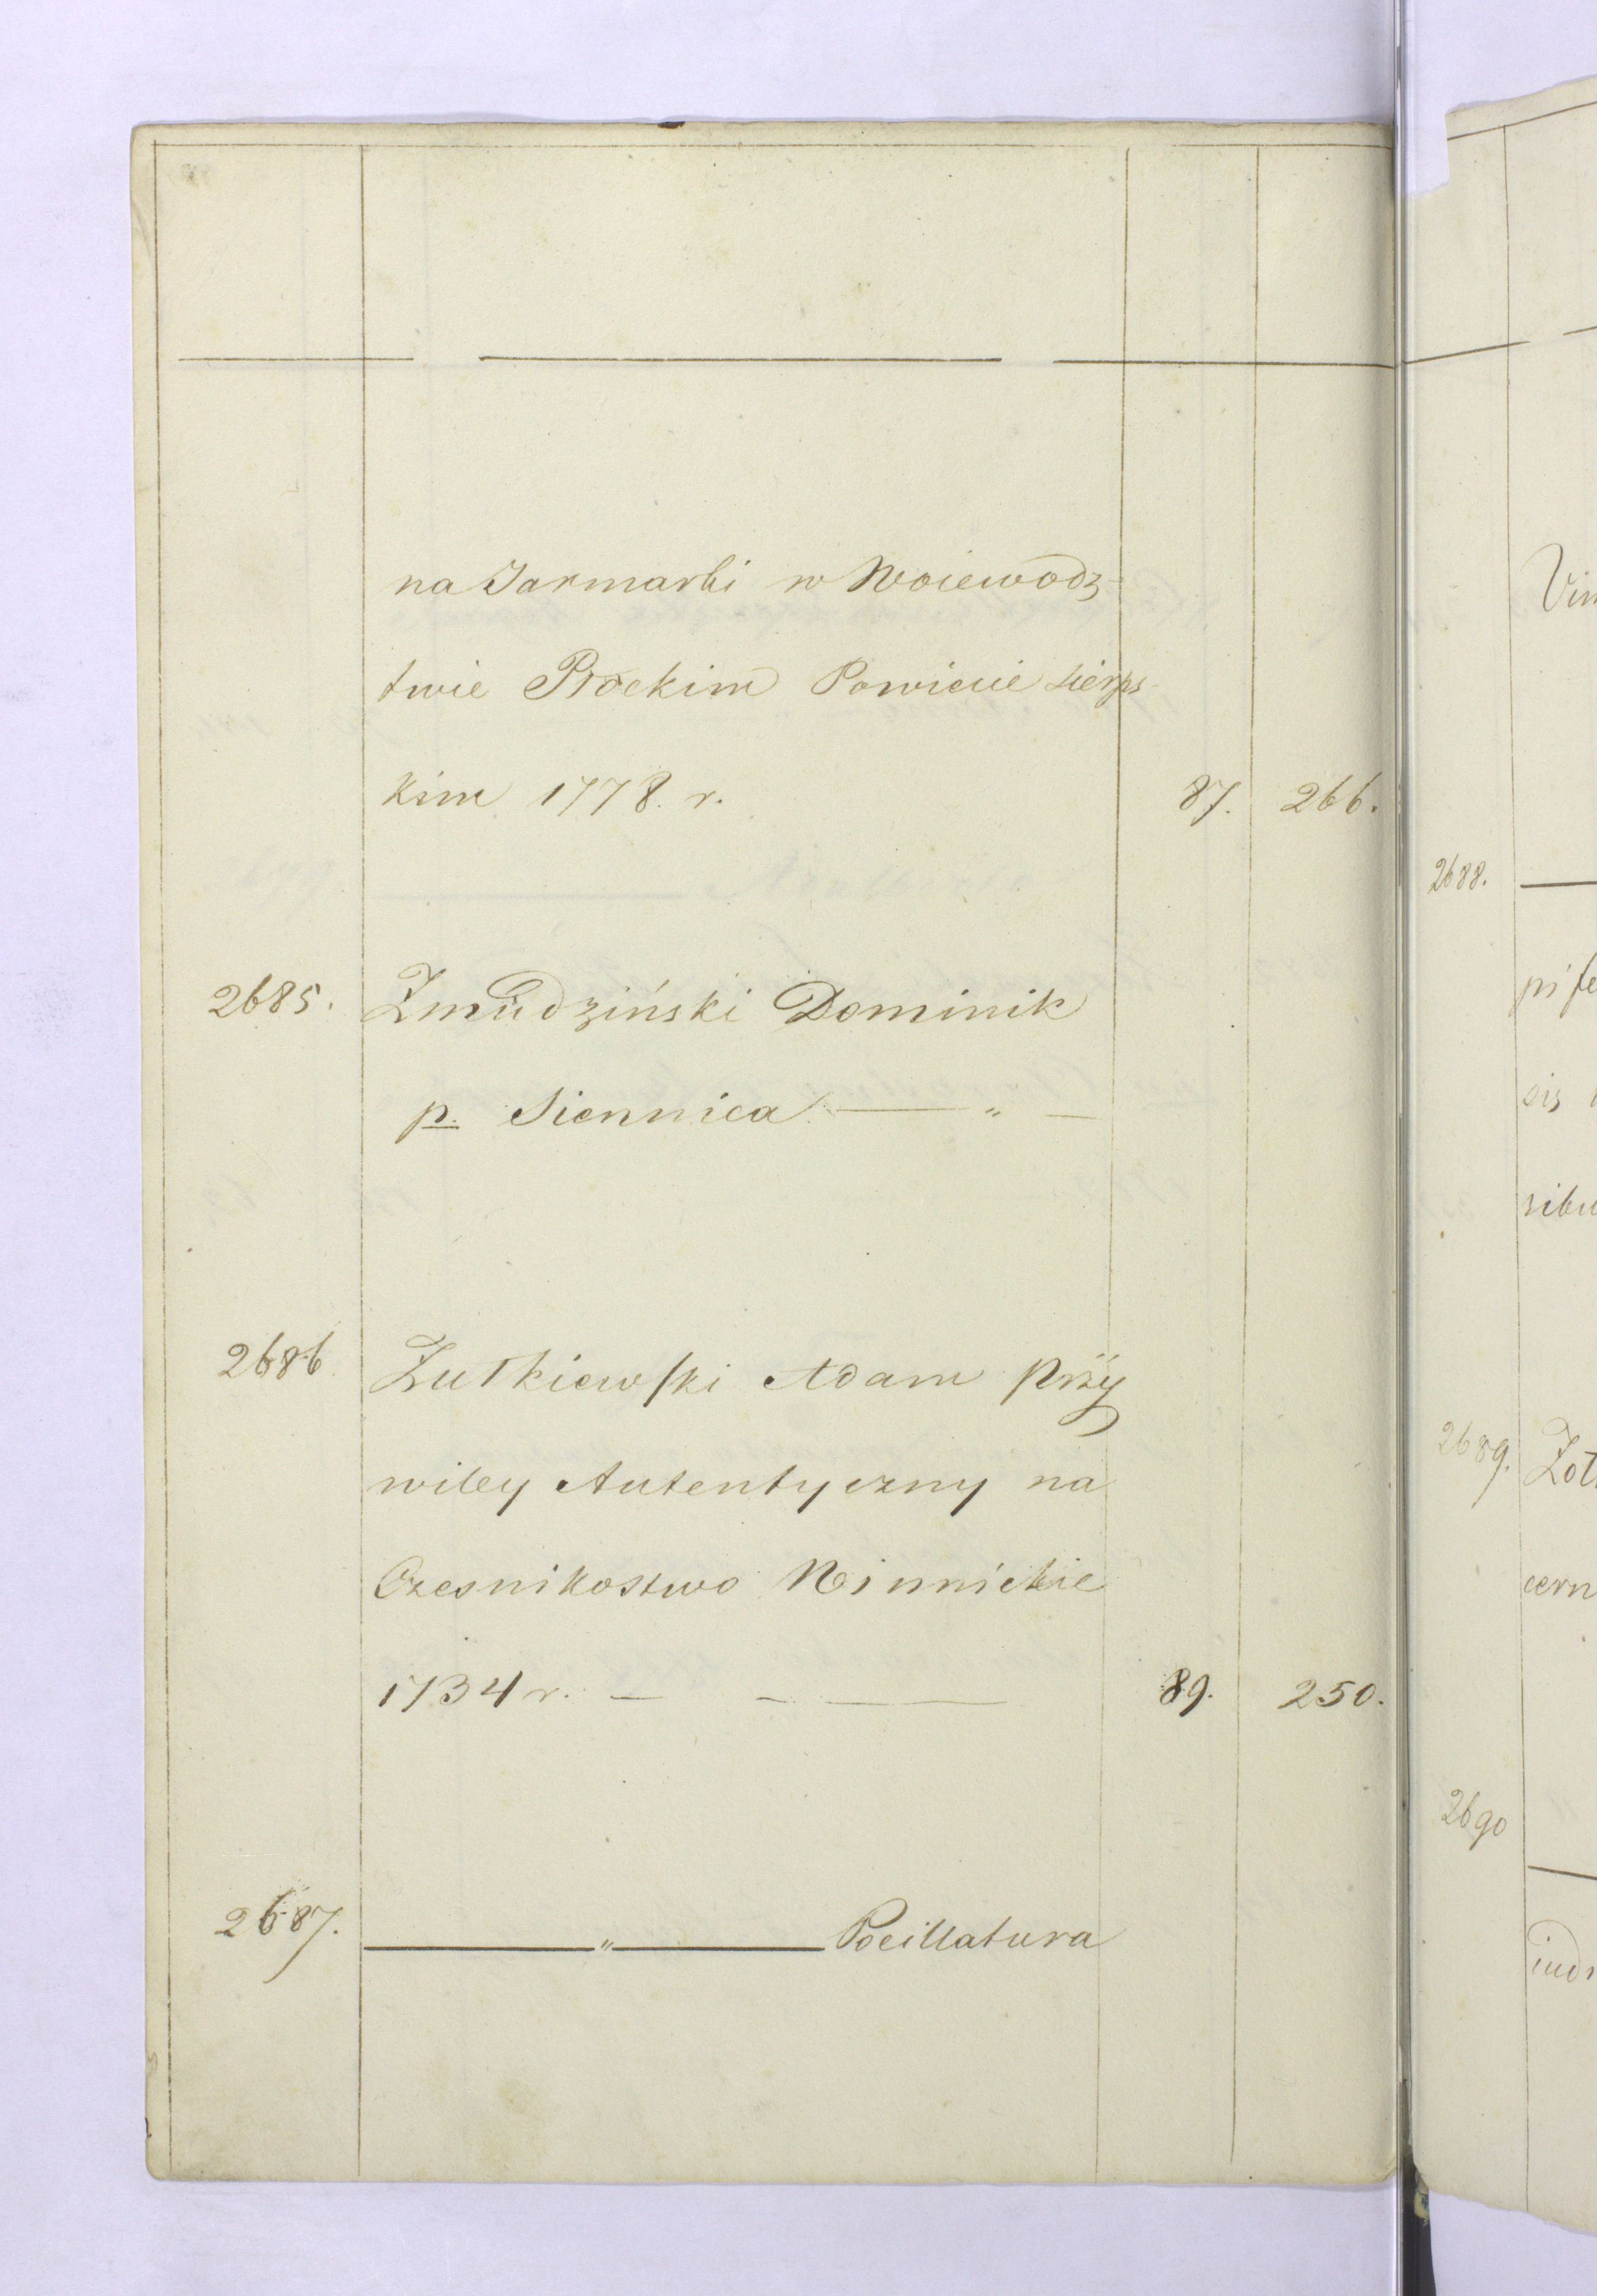 na Jarmarki w Woiewodz-
twie Płockim Powiecie Sierps-
kim 1778. r. 87. 266.
2685. Zmudziński Dominik
p. Siennica. — " —
2686 Zułkiewski Adam Przy
wiley Autentyczny na
Czesnikostwo Winnickie
1734 r. — - — 89. 250.
2687. — " — Pocillatura
2688. —
pi
sis
sibu
2689. Zoł
cern
2690
—